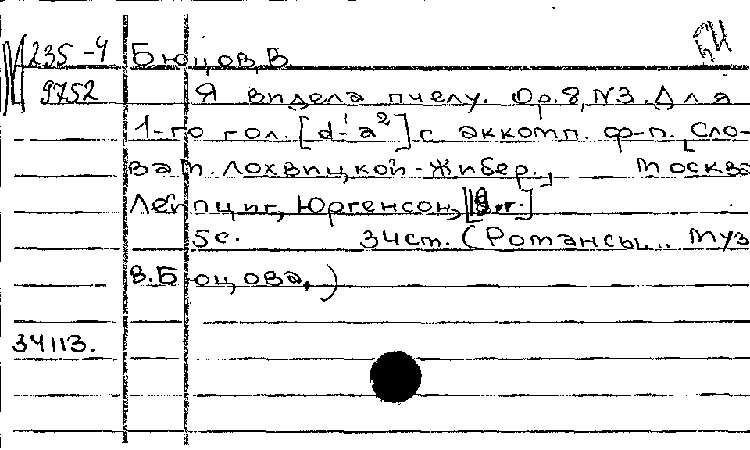 М 235-4 Бюцов, В.
9752 Я видела пчелу. Op.8, N3. Для
1-го гол. [d¹-a²] с аккомп. ф-п. [Сло-
ва М. Лохвицкой-Жибер.] Москва
Лейпциг, Юргенсон, [б.г.]
5с. 34ст. (Романсы... муз
В.Бюцова.)
34113.